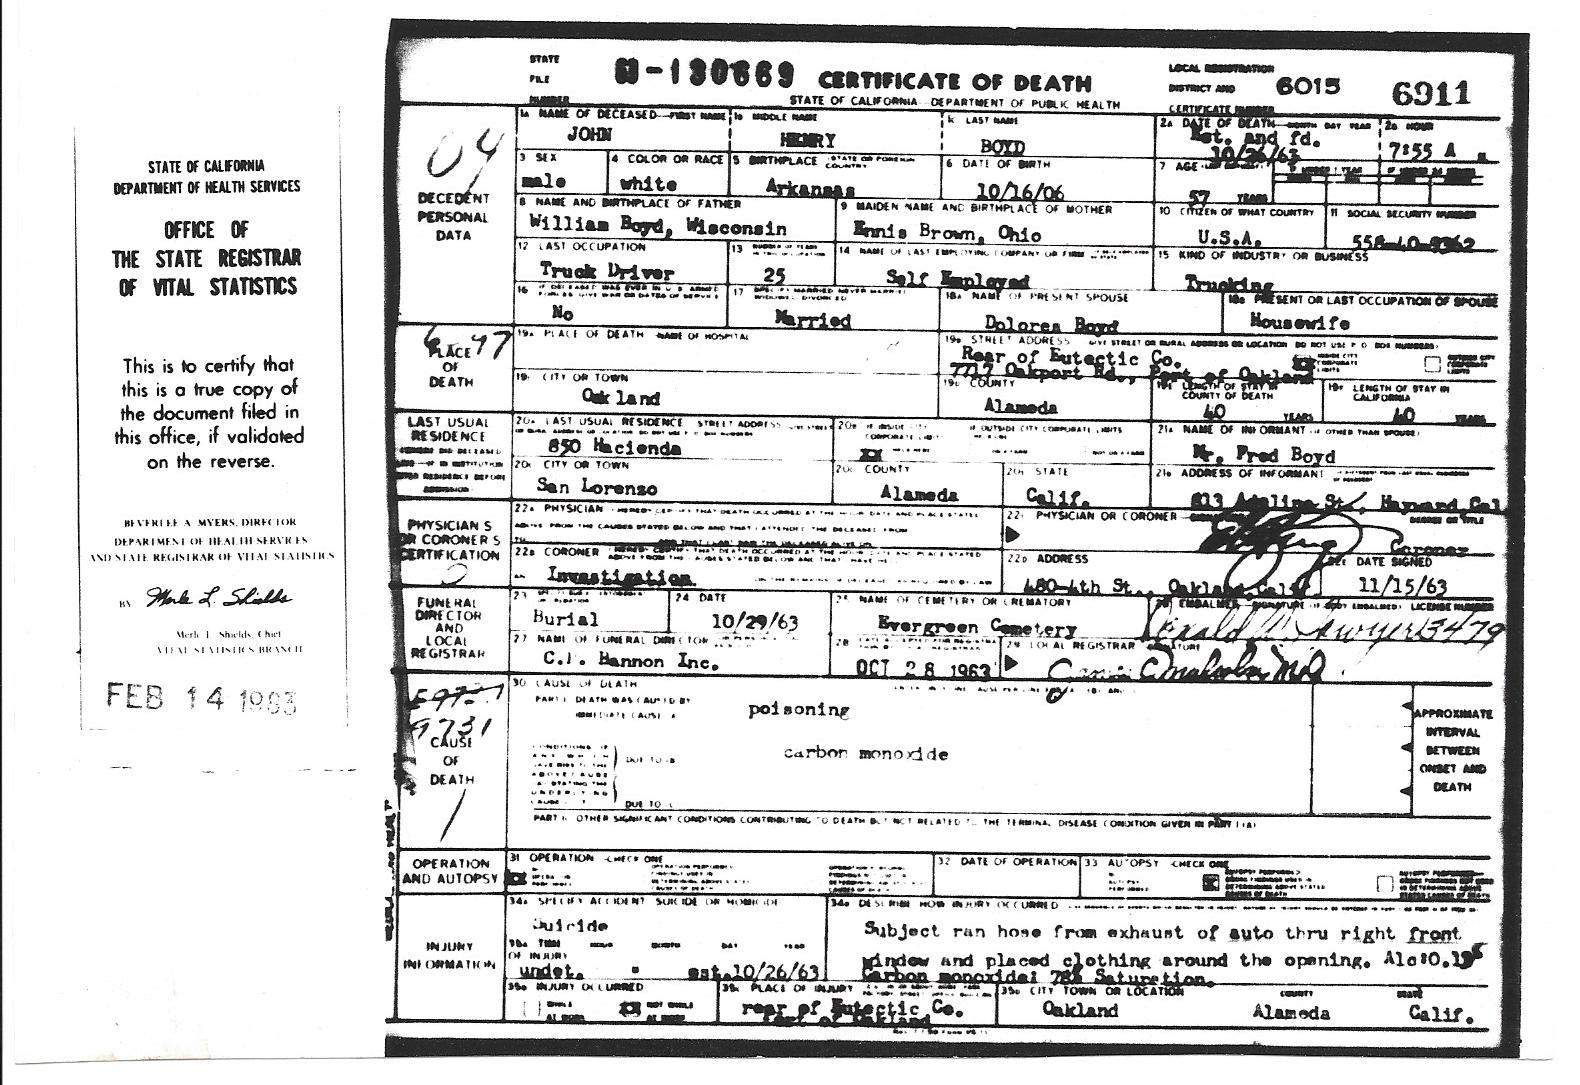 STATE OF CALIFORNIA
DEPARTMENT OF HEALTH SERVICES
OFFICE OF
THE STATE REGISTRAR
OF VITAL STATISTICS
This is to certify that
this is a true copy of
the document filed in
this office, if validated
on the reverse.
BEVERLEE A. MYERS, DIRECTOR
DEPARTMENT OF HEALTH SERVICES
AND STATE REGISTRAR OF VITAL STATISTICS
BY Merle L. Shields
Merle L. Shields, Chief
VITAL STATISTICS BRANCH
FEB 14 1983
STATE
FILE
NUMBER
CERTIFICATE OF DEATH
STATE OF CALIFORNIA DEPARTMENT OF PUBLIC HEALTH
LOCAL REGISTRATION
DISTRICT AND
CERTIFICATE NUMBER
6015 6911
04
DECEDENT
PERSONAL
DATA
1A NAME OF DECEASED—FIRST NAME
JOHN
1B MIDDLE NAME
HENRY
1C LAST NAME
BOYD
2A DATE OF DEATH—MONTH DAY YEAR
Est. and fd.
10/26/63
2B HOUR
7:55 A
3 SEX
male
4 COLOR OR RACE
white
5 BIRTHPLACE STATE OR FOREIGN COUNTRY
Arkansas
6 DATE OF BIRTH
10/16/06
7 AGE
57 YEARS
8 NAME AND BIRTHPLACE OF FATHER
William Boyd, Wisconsin
9 MAIDEN NAME AND BIRTHPLACE OF MOTHER
Ennis Brown, Ohio
10 CITIZEN OF WHAT COUNTRY
U.S.A.
11 SOCIAL SECURITY NUMBER
12 LAST OCCUPATION
Truck Driver
13
25
14 NAME OF LAST EMPLOYING COMPANY OR FIRM
Self Employed
15 KIND OF INDUSTRY OR BUSINESS
Trucking
16 IF DECEASED WAS EVER IN U.S. ARMED FORCES GIVE WAR OR DATES OF SERVICE
No
17 SPECIFY MARRIED NEVER MARRIED WIDOWED DIVORCED
Married
18A NAME OF PRESENT SPOUSE
Dolores Boyd
18B PRESENT OR LAST OCCUPATION OF SPOUSE
Housewife
PLACE
OF
DEATH
19A PLACE OF DEATH—NAME OF HOSPITAL
19B STREET ADDRESS GIVE STREET OR RURAL ADDRESS OR LOCATION DO NOT USE P O BOX NUMBERS
Rear of Eutectic Co.
7717 Oakport Rd., Port of Oakland
INSIDE CITY CORPORATE LIMITS
OUTSIDE CITY CORPORATE LIMITS
19C CITY OR TOWN
Oakland
19D COUNTY
Alameda
19E LENGTH OF STAY IN COUNTY OF DEATH
40 YEARS
19F LENGTH OF STAY IN CALIFORNIA
40 YEARS
LAST USUAL
RESIDENCE
20A LAST USUAL RESIDENCE STREET ADDRESS
850 Hacienda
20B IF INSIDE CITY CORPORATE LIMITS
IF OUTSIDE CITY CORPORATE LIMITS
21A NAME OF INFORMANT (IF OTHER THAN SPOUSE)
Mr. Fred Boyd
20C CITY OR TOWN
San Lorenzo
20D COUNTY
Alameda
20E STATE
Calif.
21B ADDRESS OF INFORMANT
613 Adeline St., Hayward, Cal
PHYSICIAN S
OR CORONER S
CERTIFICATION
22A PHYSICIAN I HEREBY CERTIFY THAT DEATH OCCURRED AT THE HOUR DATE AND PLACE STATED
ABOVE FROM THE CAUSES STATED BELOW AND THAT I ATTENDED THE DECEASED FROM
22B CORONER I HEREBY CERTIFY THAT DEATH OCCURRED AT THE HOUR DATE AND PLACE STATED
Investigation
22C PHYSICIAN OR CORONER
DEGREE OR TITLE
Coroner
22D ADDRESS
480-4th St., Oakland, Calif
22E DATE SIGNED
11/15/63
FUNERAL
DIRECTOR
AND
LOCAL
REGISTRAR
23
Burial
24 DATE
10/29/63
25 NAME OF CEMETERY OR CREMATORY
Evergreen Cemetery
26 EMBALMER—SIGNATURE (IF BODY EMBALMED) LICENSE NUMBER
3479
27 NAME OF FUNERAL DIRECTOR
C.P. Bannon Inc.
28
OCT 28 1963
29 LOCAL REGISTRAR SIGNATURE
9731
CAUSE
OF
DEATH
30 CAUSE OF DEATH
PART I DEATH WAS CAUSED BY
IMMEDIATE CAUSE A
poisoning
DUE TO B
carbon monoxide
DUE TO C
APPROXIMATE
INTERVAL
BETWEEN
ONSET AND
DEATH
PART II OTHER SIGNIFICANT CONDITIONS CONTRIBUTING TO DEATH BUT NOT RELATED TO THE TERMINAL DISEASE CONDITION GIVEN IN PART I (A)
OPERATION
AND AUTOPSY
31 OPERATION—CHECK ONE
32 DATE OF OPERATION
33 AUTOPSY—CHECK ONE
INJURY
INFORMATION
34A SPECIFY ACCIDENT SUICIDE OR HOMICIDE
Suicide
34B DESCRIBE HOW INJURY OCCURRED
Subject ran hose from exhaust of auto thru right front
window and placed clothing around the opening.
Carbon monoxide: 78% Saturation.
35A TIME OF INJURY HOUR MONTH DAY YEAR
undet. est.10/26/63
35B INJURY OCCURRED
WHILE AT WORK
NOT WHILE AT WORK
35C PLACE OF INJURY
rear of Eutectic Co.
Port of Oakland
35D CITY TOWN OR LOCATION COUNTY STATE
Oakland Alameda Calif.